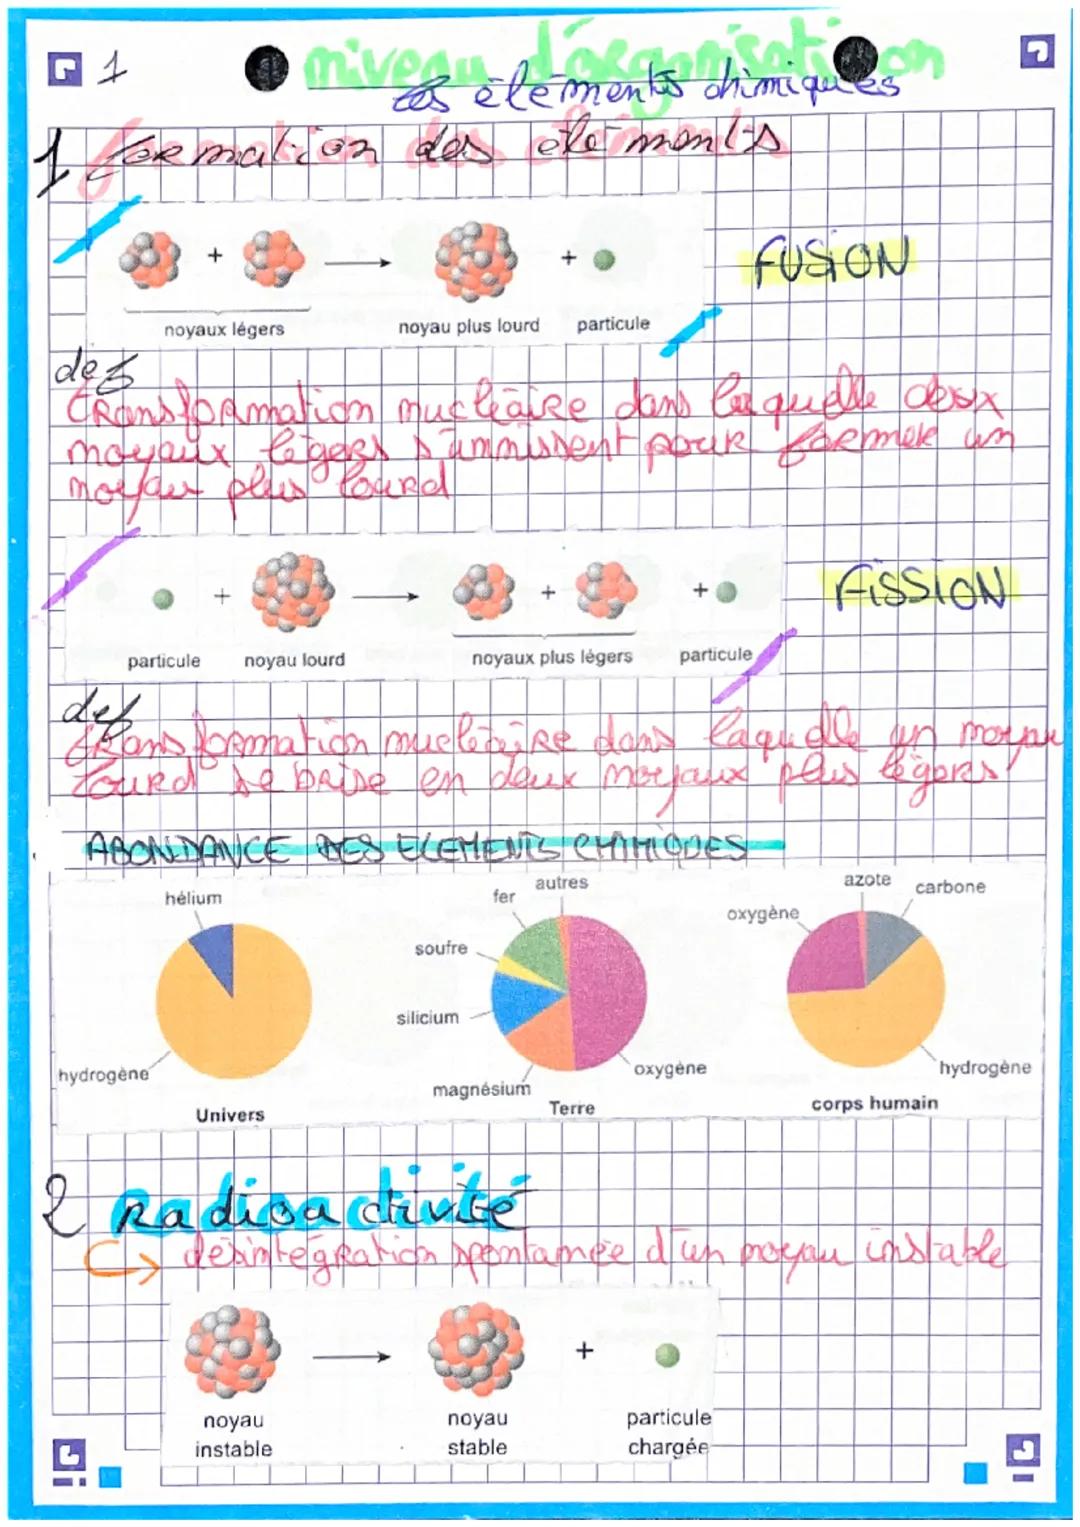 1
niveau d'organisation
les éléments chimiques
1 formation des éléments
+ → +
FUSION
noyaux légers noyau plus lourd particule
def
transformation nucléaire dans laquelle deux
noyaux légers s'unnissent pour former un
noyau plus lourd
+ → + +
FISSION
particule noyau lourd noyaux plus légers particule
def
transformation nucléaire dans laquelle un noyau
lourd se brise en deux noyaux plus légers
ABONDANCE DES ELEMENTS CHIMIQUES
hélium
hydrogène
Univers
autres
fer
soufre
silicium
magnésium
oxygène
Terre
azote
carbone
oxygène
hydrogène
corps humain
2 Radioactivité
désintégration spontanée d'un noyau instable
→ +
noyau instable
noyau stable
particule chargée